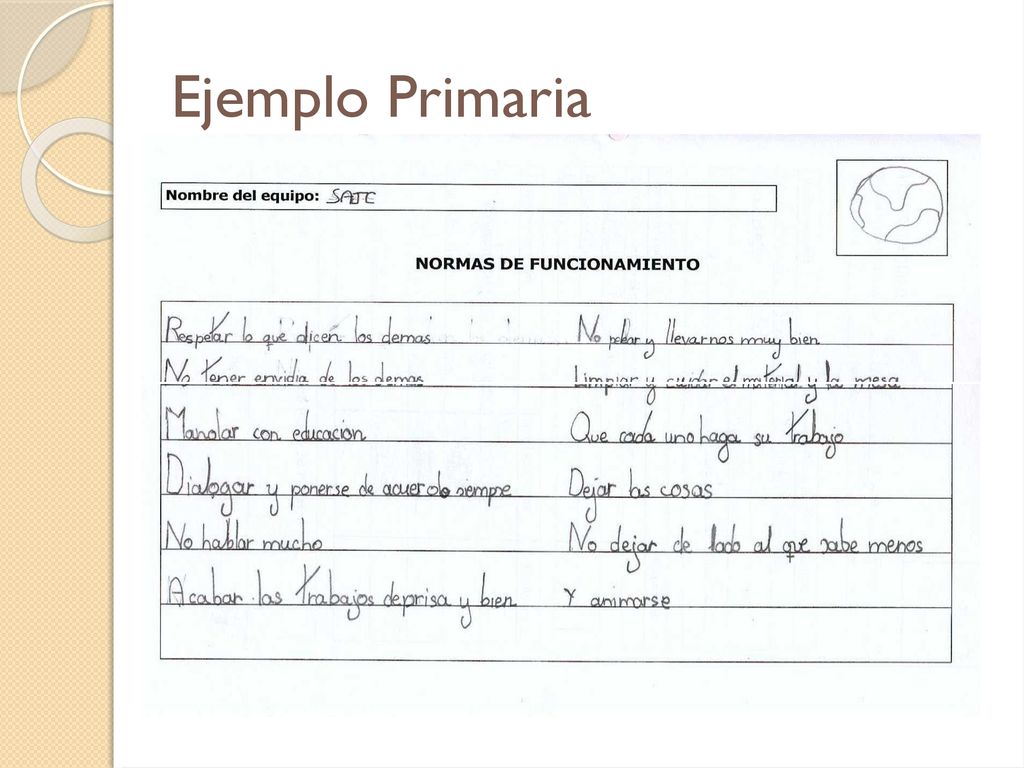 Ejemplo Primaria
Nombre del equipo: SAJC
NORMAS DE FUNCIONAMIENTO
Respetar lo que dicen los demas No pelear y llevarnos muy bien
No tener envidia de los demas Limpiar y cuidar el material y la mesa
Mandar con educacion Que cada uno haga su trabajo
Dialogar y ponerse de acuerdo siempre Dejar las cosas
No hablar mucho No dejar de lado al que sabe menos
Acabar las trabajos deprisa y bien Y animarse